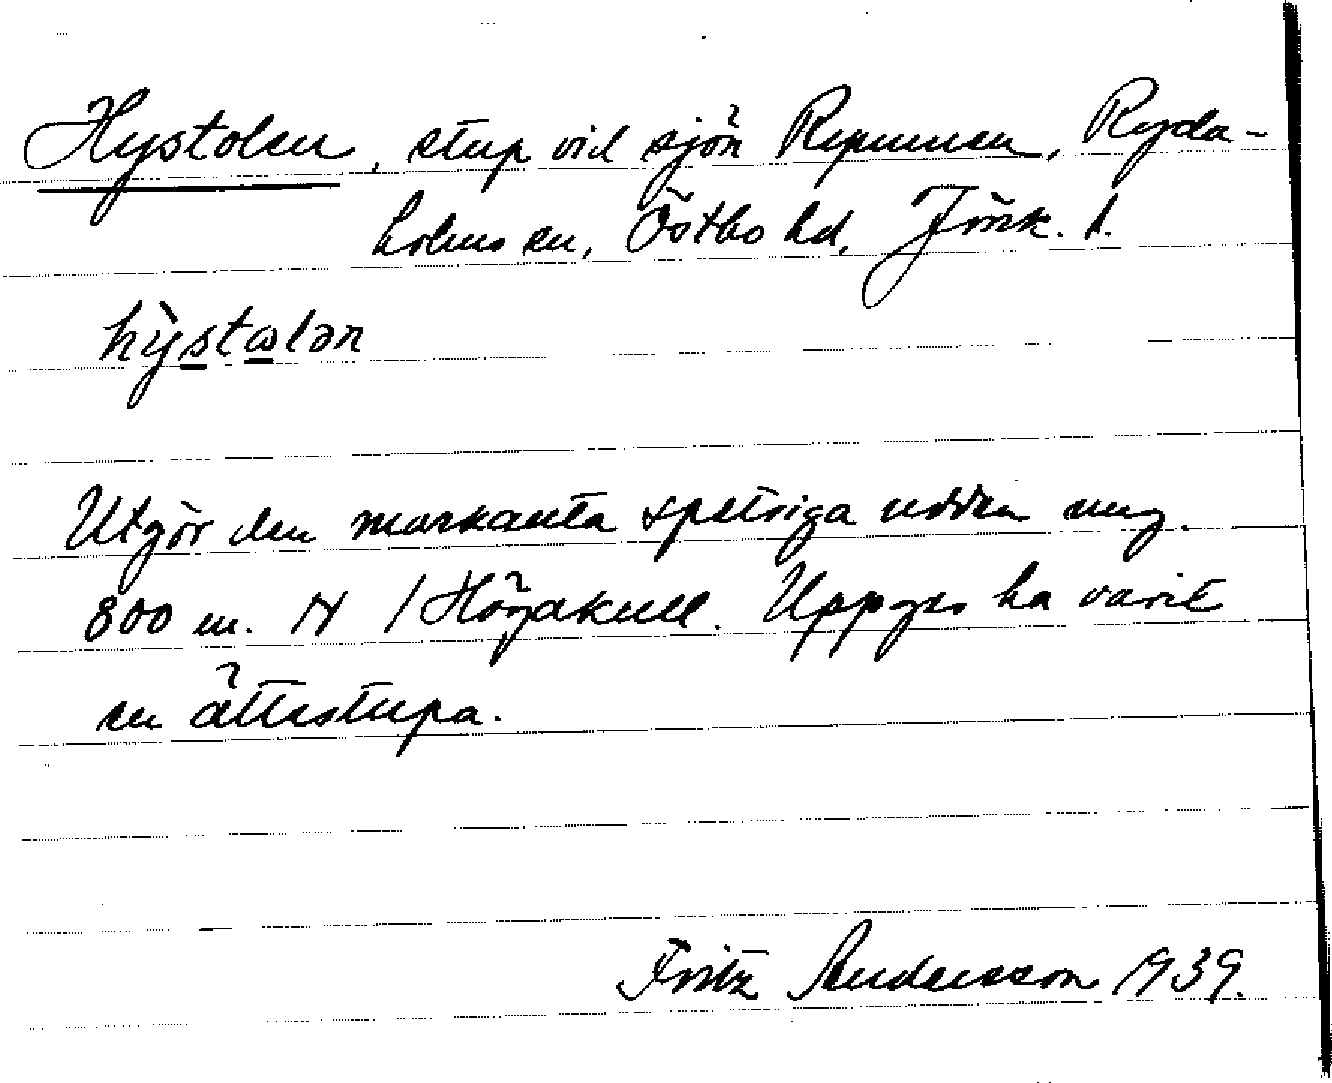 Hystolen, stup vid sjön Rymmen, Ryda-
holms sn, Östbo hd, Jönk. l.
hỳstωlən
Utgör den markanta spetsiga udden ung.
800 m. N / Högakull. Uppges ha varit
en ättestupa.
Fritz Andersson 1939.